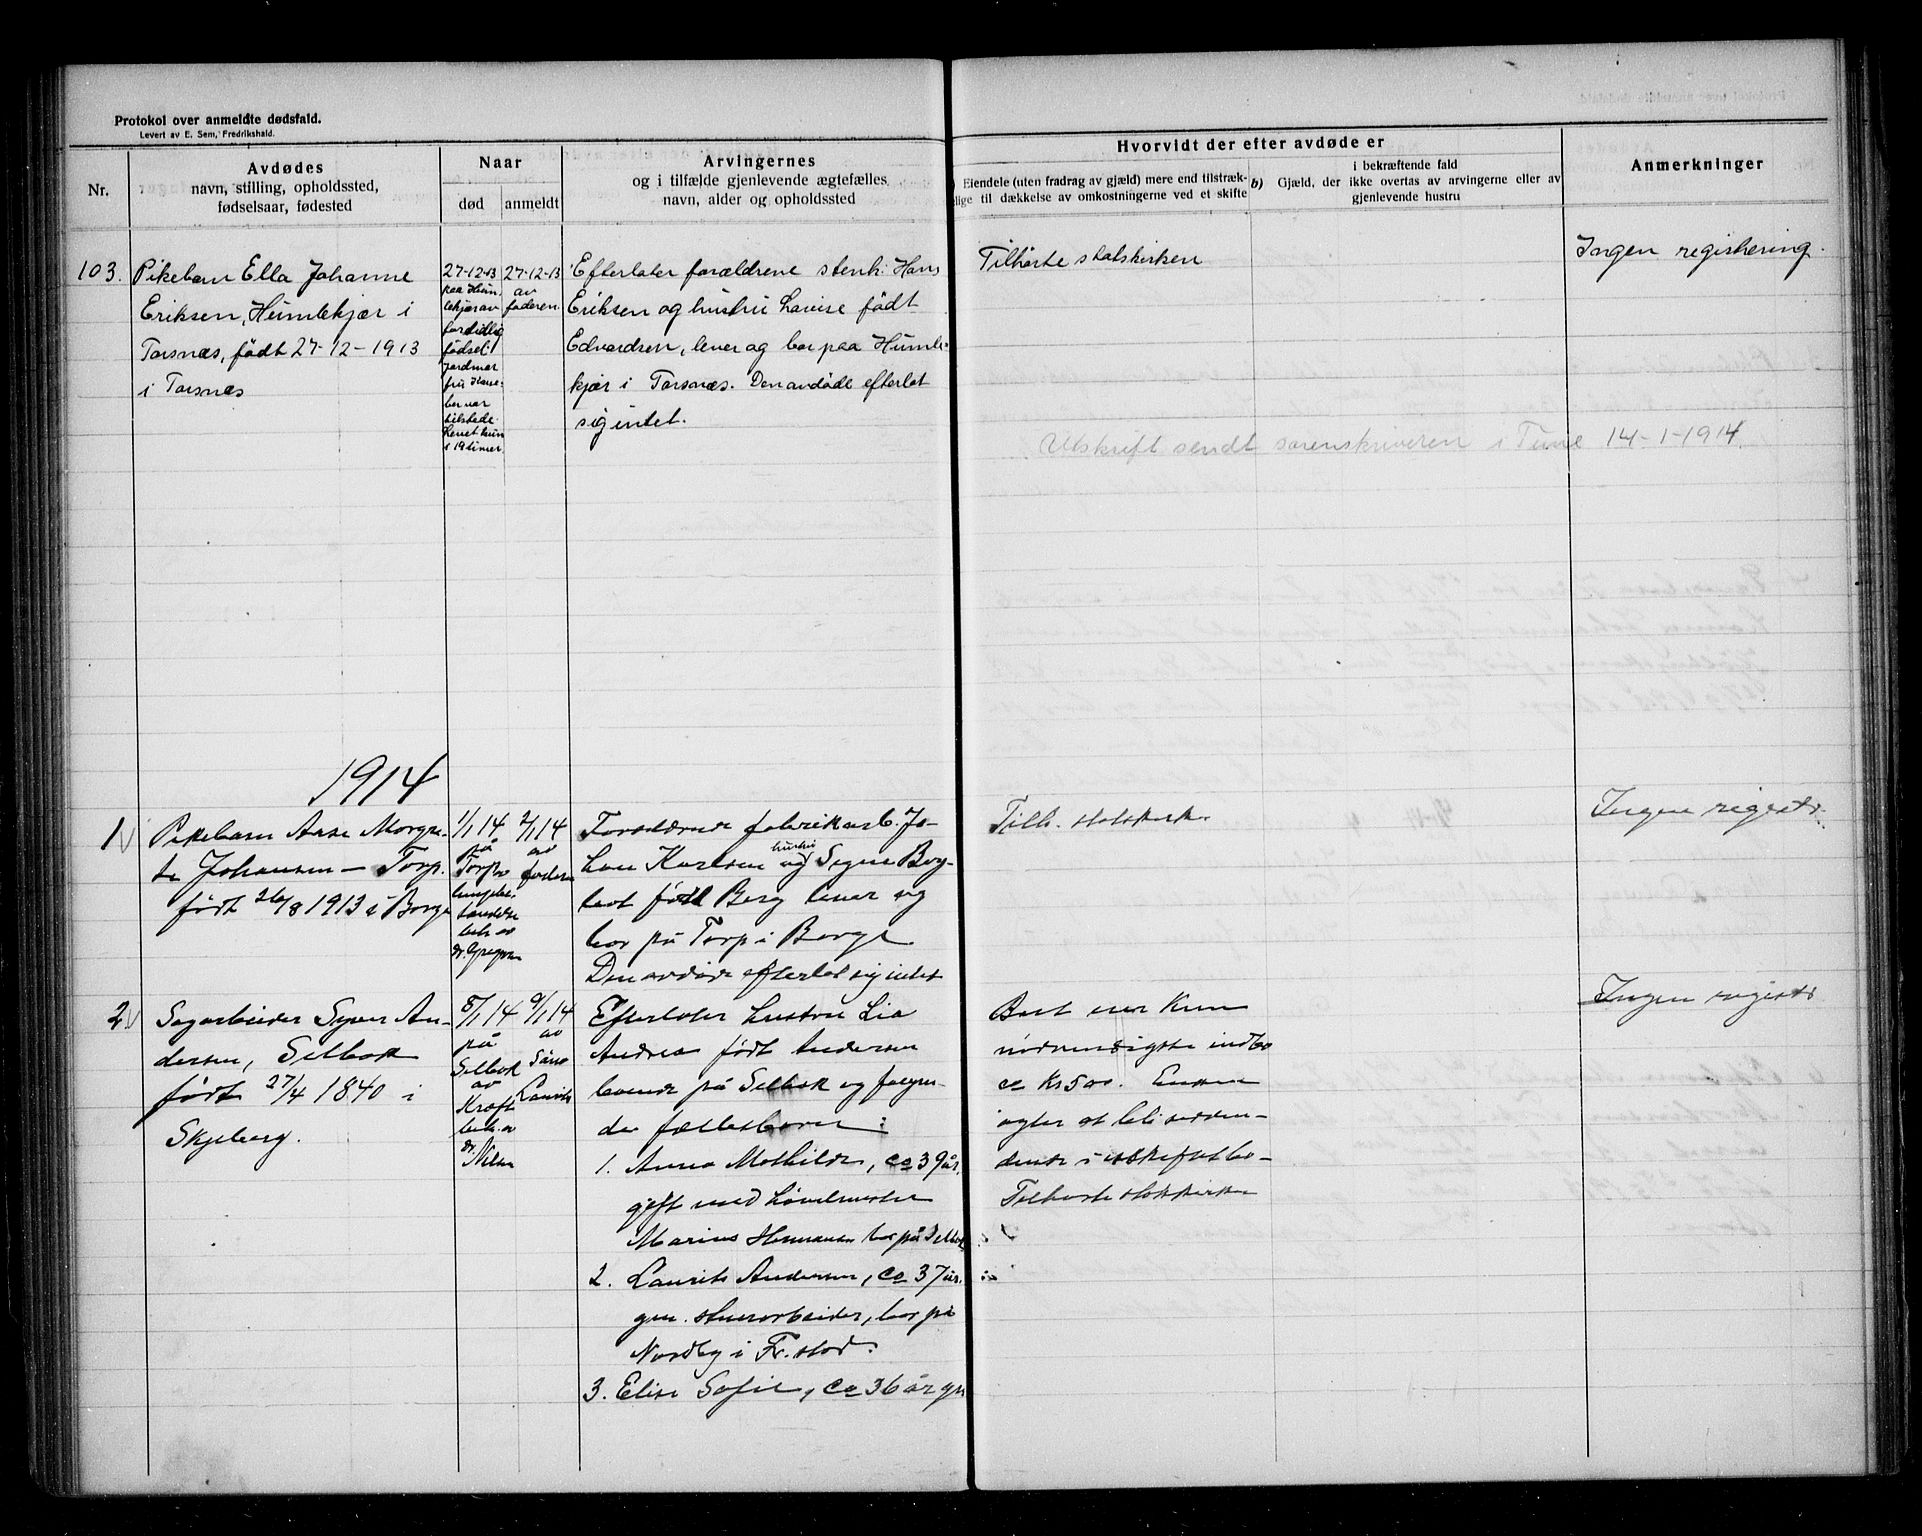 Protokol over anmeldte dødsfald.
Levert av E. Sem, Fredrikshald.
Nr.
Avdødes
navn, stilling, opholdssted,
fødselsaar, fødested
Naar
død
anmeldt
Arvingernes
og i tilfælde gjenlevende ægtefælles
navn, alder og opholdssted
Hvorvidt der efter avdøde er
Eiendele (uten fradrag av gjæld) mere end tilstræk-
lige til dækkelse av omkostningerne ved et skifte
b)
i bekræftende fald
Gjæld, der ikke overtas av arvingerne eller av
gjenlevende hustru
Anmerkninger
103.
Pikebarn Ella Johanne
Eriksen, Humlekjær i
Torsnæs, født 27-12-1913
i Torsnæs
27-12-13
paa Hum-
lekjær av
fortidlig
fødsel.
Jordmor
fru
ber var
tilstede.
Levet kun
i 19 timer.
27-12-13
av
faderen.
Efterlater forældrene stenh. Hans
Eriksen og hustru Lovise født
Edvardsen, lever og bor paa Humle-
kjær i Torsnæs. Den avdøde efterlot
sig intet.
Tilhørte statskirken
Ingen registrering.
Utskrift sendt sorenskriveren i Tune 14-1-1914.
1914
1
Pikebarn Aase Margre-
te Johansen – Torp.
født 26/8 1913 i Borge
1/1 14
på
Torp av
lungebe-
tændelse
beh. av
dr.
2/1 14
av
faderen
Forældrene fabrikarb. Jo-
han Karlsen og hustru Signe Borg-
født Berg lever og
bor på Torp i Borge
Den avdøde efterlot sig intet
Tilh. statskirk.
Ingen registr.
2
Sagarbeider Syver An-
dersen, Selbak
født 27/4 1840 i
Skjeberg.
8/1 14
på
Selbak
av
Kræft
beh. av
dr. Nilsen
9/1 14
av
Laurits
Efterlater hustru Lia
Andrea født Andersen
boende på Selbak og følgen-
de fællesbarn:
1. Anna Mathilde, ca 39 år,
gift med
Marius Hermansen bor på Selbak
2. Laurits Andersen, ca 37 år.
gm. stenarbeider, bor på
Nordby i Fr.stad.
3. Elise Sofie, ca 36 år gm
Bort er kun
nødvendigste indbo
ca kr 500. Enken
agter at bli sidden-
de i uskiftet bo-
Tilhørte statskirken
Ingen registr